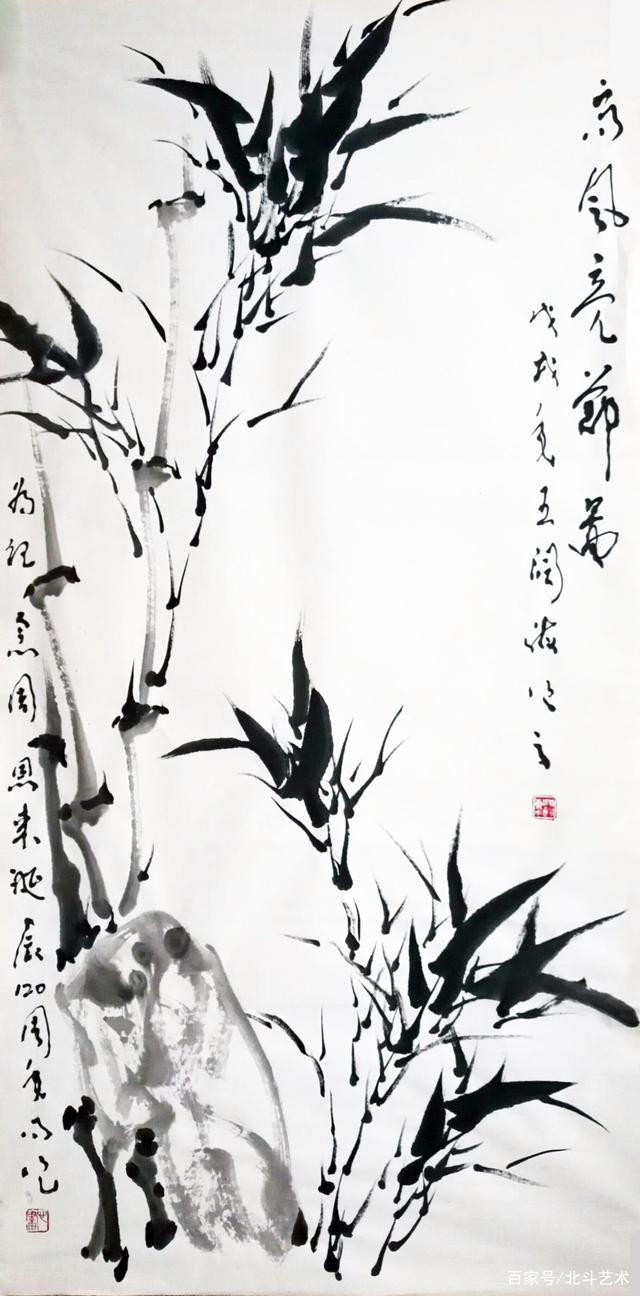 高風亮節圖
戊戌年王闊海作
為纪念周恩来诞辰120周年而作
百家号/北斗艺术